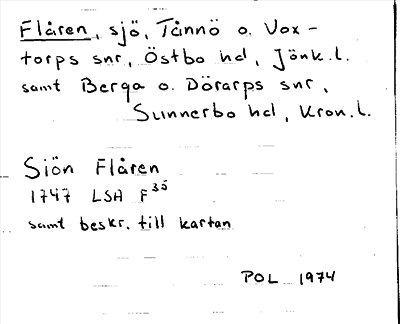 Flåren, sjö, Tånnö o. Vox-
torps snr, Östbo hd, Jönk.l.
samt Berga o. Dörarps snr,
Sunnerbo hd, Kron.l.
Sjön Flåren
1747 LSA F 35
samt beskr. till kartan
POL 1974